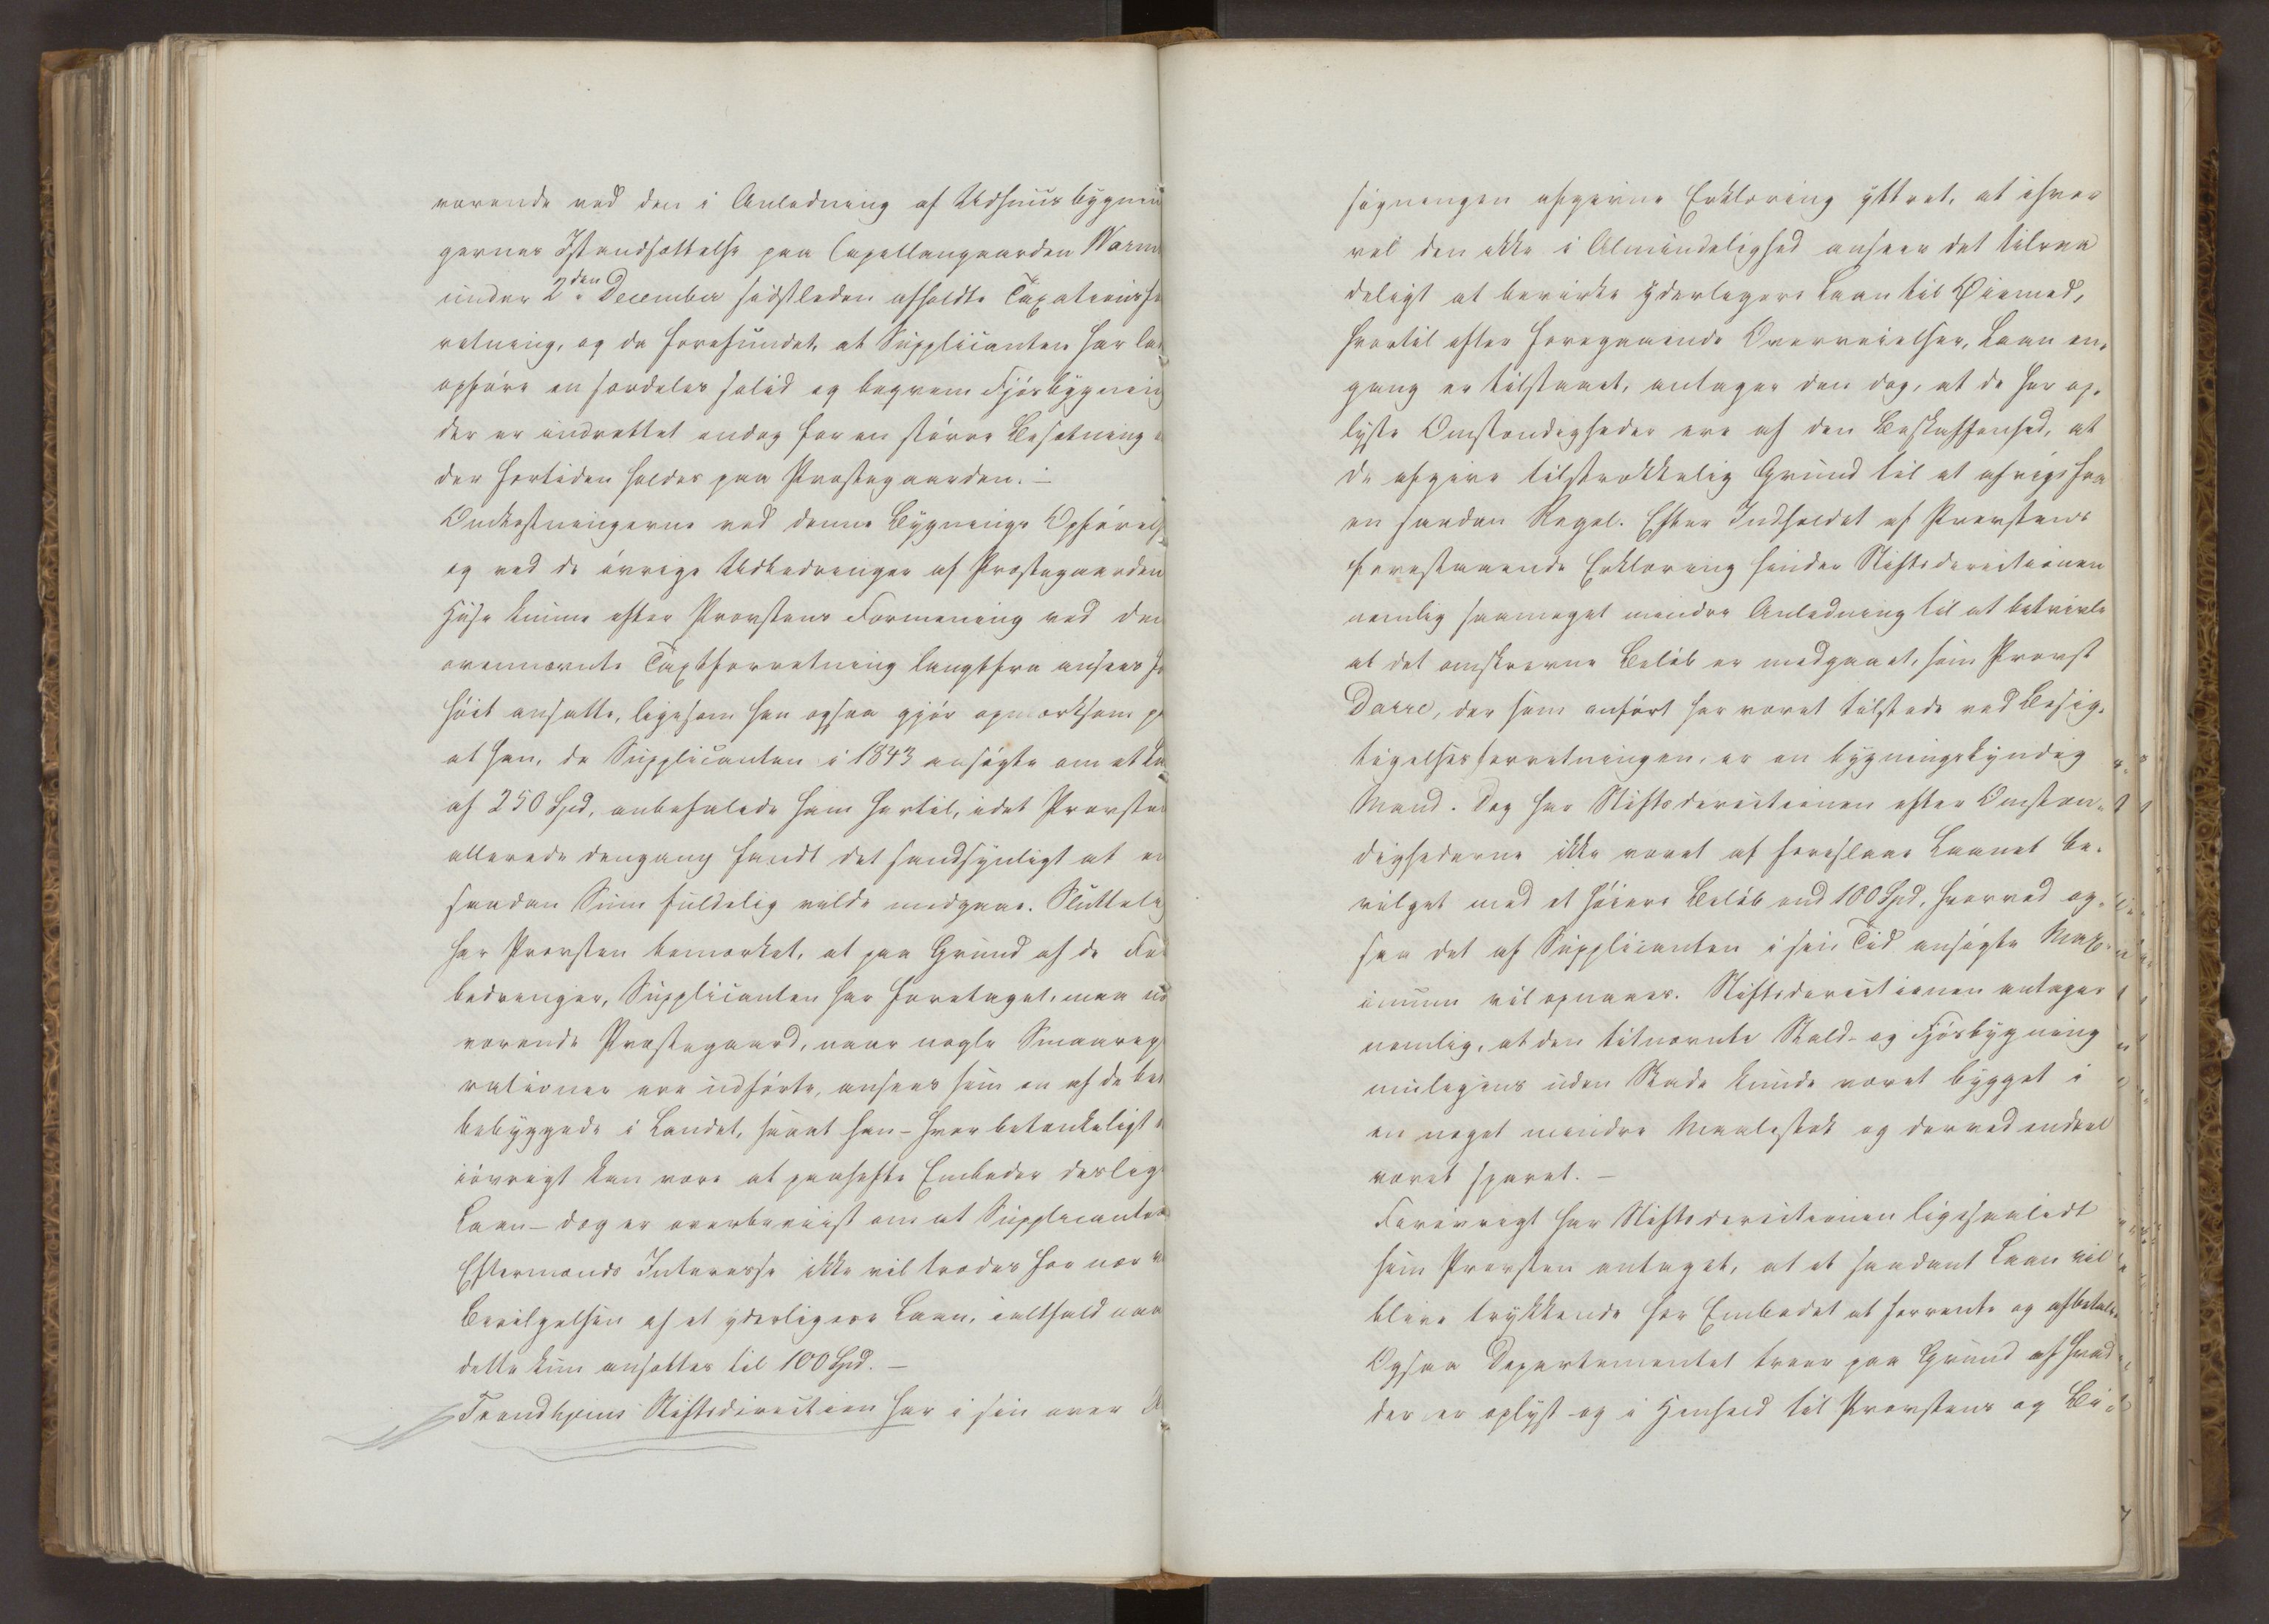 værende ved den i Anledning af Udhuusbygnin
gernes Istandsættelse paa Capellangaarden Værn
under 2den December sidstleden afholdte Taxationsfor
retning, og da forefundet, at Supplicanten har lad
opføre en særdeles solid og beqvem Fjøsbygning
der er indrettet endog for en større Besætning
der fortiden holdes paa Præstegaarden. –
Omkostningerne ved denne Bygnings Opførels
og ved de øvrige Udbedringer af Præstegaarden
Huse kunne efter Provstens Formening ved den
ovennævnte Taxtforretning langtfra ansees fo
høit ansatte, ligesom han ogsaa gjør opmærksom p
at han, da Supplicanten i 1843 ansøgte om et La
af 250 Spd, anbefalede ham hertil, idet Provsten
allerede dengang fandt det sandsynligt at en
saadan Sum fuldelig vilde medgaae. Slutteli
har Provsten bemærket, at paa Grund af de For
bedringer, Supplicanten har foretaget, maa nu
værende Præstegaard, naar nogle Smaarep
rationer ere udførte, ansees som en af de bed
bebyggede i Landet, saaat han – hvor betænkeligt
iøvrigt kan være at paahefte Embeder deslig
Laan – dog er overbeviist om at Supplicanten
Eftermands Interesse ikke vil trædes for nær v
Bevilgelsen af et yderligere Laan, ialtfald naa
dette kun ansættes til 100 Spd. –
Trondhjems Stiftsdirection har i sin over A
søgningen afgivne Erklæring yttret, at ihvor
vel den ikke i Almindelighed anseer det tilraa
deligt at bevirke yderligere Laan til Øiemed,
hvortil efter foregaaende Overveielser, Laan en,
gang er tilstaaet, antager den dog, at de her op,
lyste Omstændigheder ere af den Beskaffenhed, at
de afgive tilstrækkelig Grund til at afvige fra
en saadan Regel. Efter Indholdet af Provstens
forestaaende Erklæring finder Stiftsdirectionen
nemlig saameget mindre Anledning til at betvivle
at det omskrevne Beløb er medgaaet, som Provst
Darre, der som anført har været tilstede ved Besig,
tigelsesforretningen, er en bygningskyndig
Mand. Dog har Stiftsdirectionen efter Omstæn,
dighederne ikke  at foreslaae Laanet be,
vilget med et høiere Beløb end 100 Spd, hvorved og,
saa det af Supplicanten i sin Tid ansøgte Max,
imum vil opnaaes. Stiftsdirectionen antager
nemlig, at den titnævnte Stald- og Fjøsbygning
muligens uden Skade kunde været bygget i
en noget mindre Maalestok og derved endeel
været sparet. –
Forøvrigt har Stiftsdirectionen ligesaalidt
som Provsten antaget, at et saadant Laan vil
blive trykkende for Embedet at forrente og afbetale.
Ogsaa Departementet troer paa Grund af hvad
der er oplyst og i Henhold til Provstens og Bi